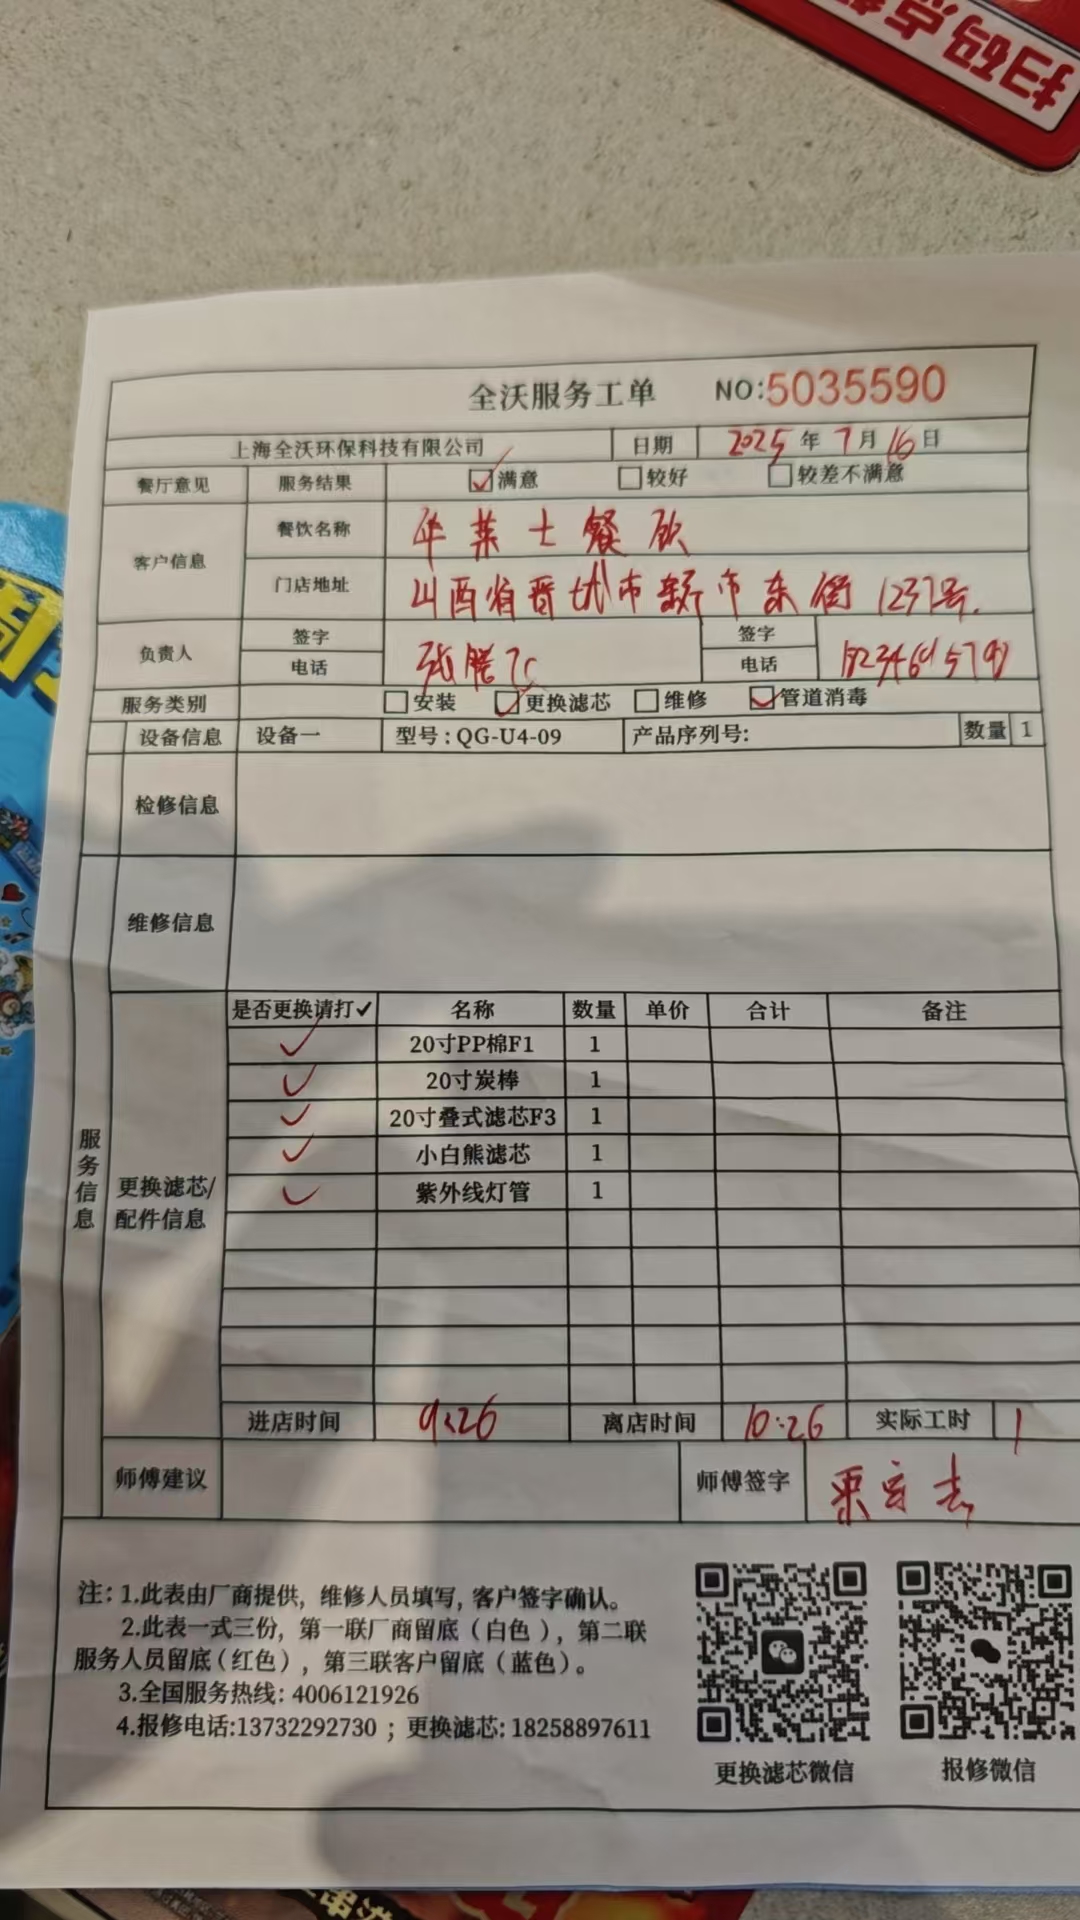 扫码点餐
全沃服务工单 NO:5035590
上海全沃环保科技有限公司 日期 2025年7月16日
餐厅意见 服务结果 ☑满意 □较好 □较差不满意
客户信息 餐饮名称 华莱士餐饮
门店地址 山西省晋城市新市东街1237号.
负责人 签字 电话 签字 电话
服务类别 □安装 ☑更换滤芯 □维修 ☑管道消毒
设备信息 设备一 型号:QG-U4-09 产品序列号: 数量 1
检修信息
维修信息
服务信息
更换滤芯/配件信息
是否更换请打✓ 名称 数量 单价 合计 备注
✓ 20寸PP棉F1 1
✓ 20寸炭棒 1
✓ 20寸叠式滤芯F3 1
✓ 小白熊滤芯 1
✓ 紫外线灯管 1
进店时间 9:26 离店时间 10:26 实际工时 1
师傅建议 师傅签字
注: 1.此表由厂商提供, 维修人员填写, 客户签字确认。
2.此表一式三份, 第一联厂商留底(白色), 第二联
服务人员留底(红色), 第三联客户留底(蓝色)。
3.全国服务热线: 4006121926
4.报修电话:13732292730 ; 更换滤芯: 18258897611
更换滤芯微信 报修微信